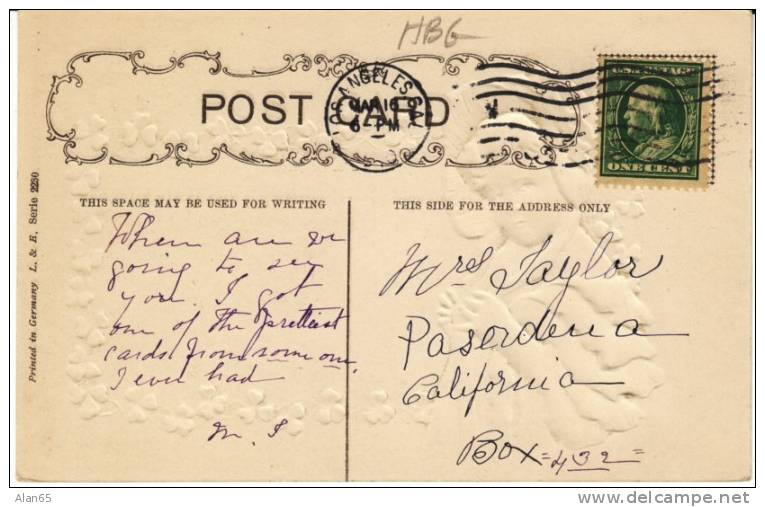 HBG
POST CARD
LOS ANGELES, CAL.
MAR 16
6-PM
U.S. POSTAGE
ONE CENT
THIS SPACE MAY BE USED FOR WRITING
When are we
going to see
you. I got
one of the prettiest
cards from some one
I ever had
M. I
THIS SIDE FOR THE ADDRESS ONLY
Mrs Taylor
Paserdena
California
Box = 432 =
Printed in Germany L. & R. Serie 2230
Alan65
http://www.delcampe.net